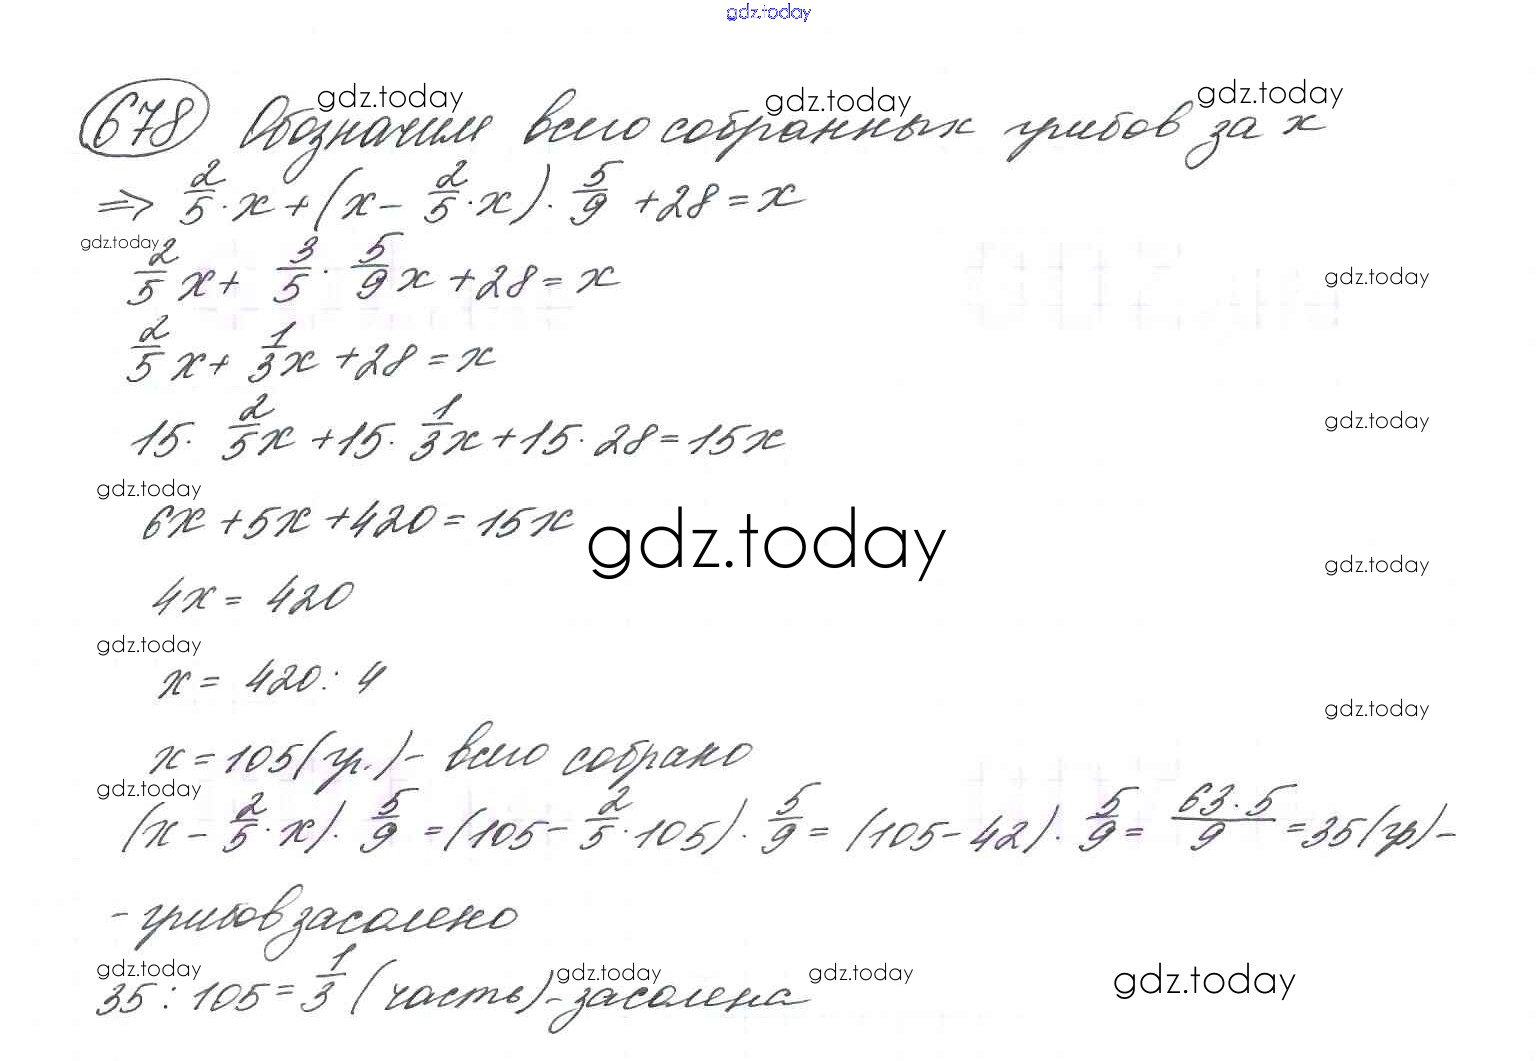 gdz.today
678 Обозначим всего собранных грибов за x
gdz.today gdz.today gdz.today
⇒ 2/5 · x + (x - 2/5 · x) · 5/9 + 28 = x
gdz.today
2/5 x + 3/5 · 5/9 x + 28 = x
gdz.today
2/5 x + 1/3 x + 28 = x
15 · 2/5 x + 15 · 1/3 x + 15 · 28 = 15x
gdz.today
gdz.today
6x + 5x + 420 = 15x
gdz.today
gdz.today
4x = 420
gdz.today
x = 420 : 4
gdz.today
x = 105 (гр.) - всего собрано
gdz.today
(x - 2/5 · x) · 5/9 = (105 - 2/5 · 105) · 5/9 = (105 - 42) · 5/9 = 63 · 5/9 = 35 (гр) -
- грибов засолено
gdz.today gdz.today gdz.today gdz.today
35 : 105 = 1/3 (часть) - засолена